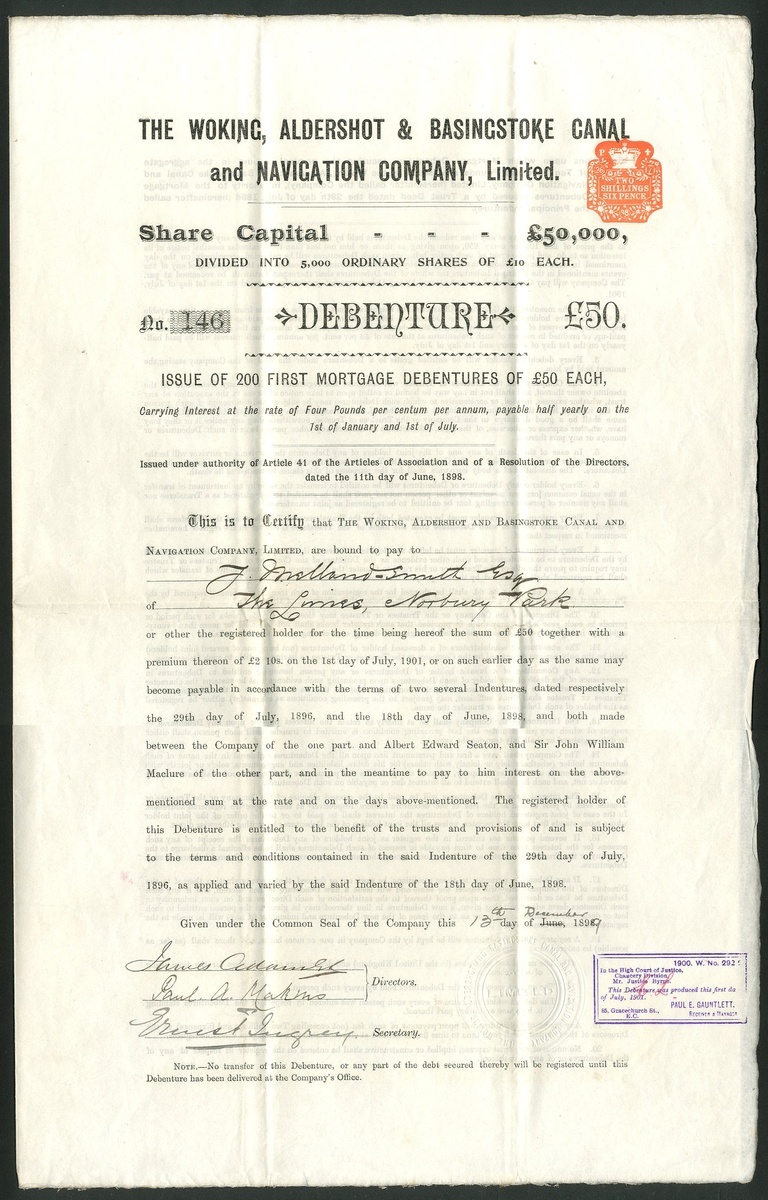 THE WOKING, ALDERSHOT & BASINGSTOKE CANAL
and NAVIGATION COMPANY, Limited.
TWO
SHILLINGS
SIX PENCE
Share Capital - - - £50,000,
DIVIDED INTO 5,000 ORDINARY SHARES OF £10 EACH.
No. 146 DEBENTURE £50.
ISSUE OF 200 FIRST MORTGAGE DEBENTURES OF £50 EACH,
Carrying Interest at the rate of Four Pounds per centum per annum, payable half yearly on the
1st of January and 1st of July.
Issued under authority of Article 41 of the Articles of Association and of a Resolution of the Directors,
dated the 11th day of June, 1898.
This is to Certify that THE WOKING, ALDERSHOT AND BASINGSTOKE CANAL AND
NAVIGATION COMPANY, LIMITED, are bound to pay to
J. Melland-Smith Esq
of The Limes, Norbury Park
or other the registered holder for the time being hereof the sum of £50 together with a
premium thereon of £2 10s. on the 1st day of July, 1901, or on such earlier day as the same may
become payable in accordance with the terms of two several Indentures, dated respectively
the 29th day of July, 1896, and the 18th day of June, 1898, and both made
between the Company of the one part and Albert Edward Seaton, and Sir John William
Maclure of the other part, and in the meantime to pay to him interest on the above-
mentioned sum at the rate and on the days above-mentioned. The registered holder of
this Debenture is entitled to the benefit of the trusts and provisions of and is subject
to the terms and conditions contained in the said Indenture of the 29th day of July,
1896, as applied and varied by the said Indenture of the 18th day of June, 1898.
Given under the Common Seal of the Company this 13th day of June, December 1899
Paul. A. Makins
Directors.
Ernest Ingrey
Secretary.
1900. W. No. 292
In the High Court of Justice,
Chancery Division,
Mr. Justice Byrne.
This Debenture was produced this first day
of July, 1901.
PAUL E. GAUNTLETT,
85, Gracechurch St.,
E.C.
RECEIVER & MANAGER
NOTE.—No transfer of this Debenture, or any part of the debt secured thereby will be registered until this
Debenture has been delivered at the Company's Office.